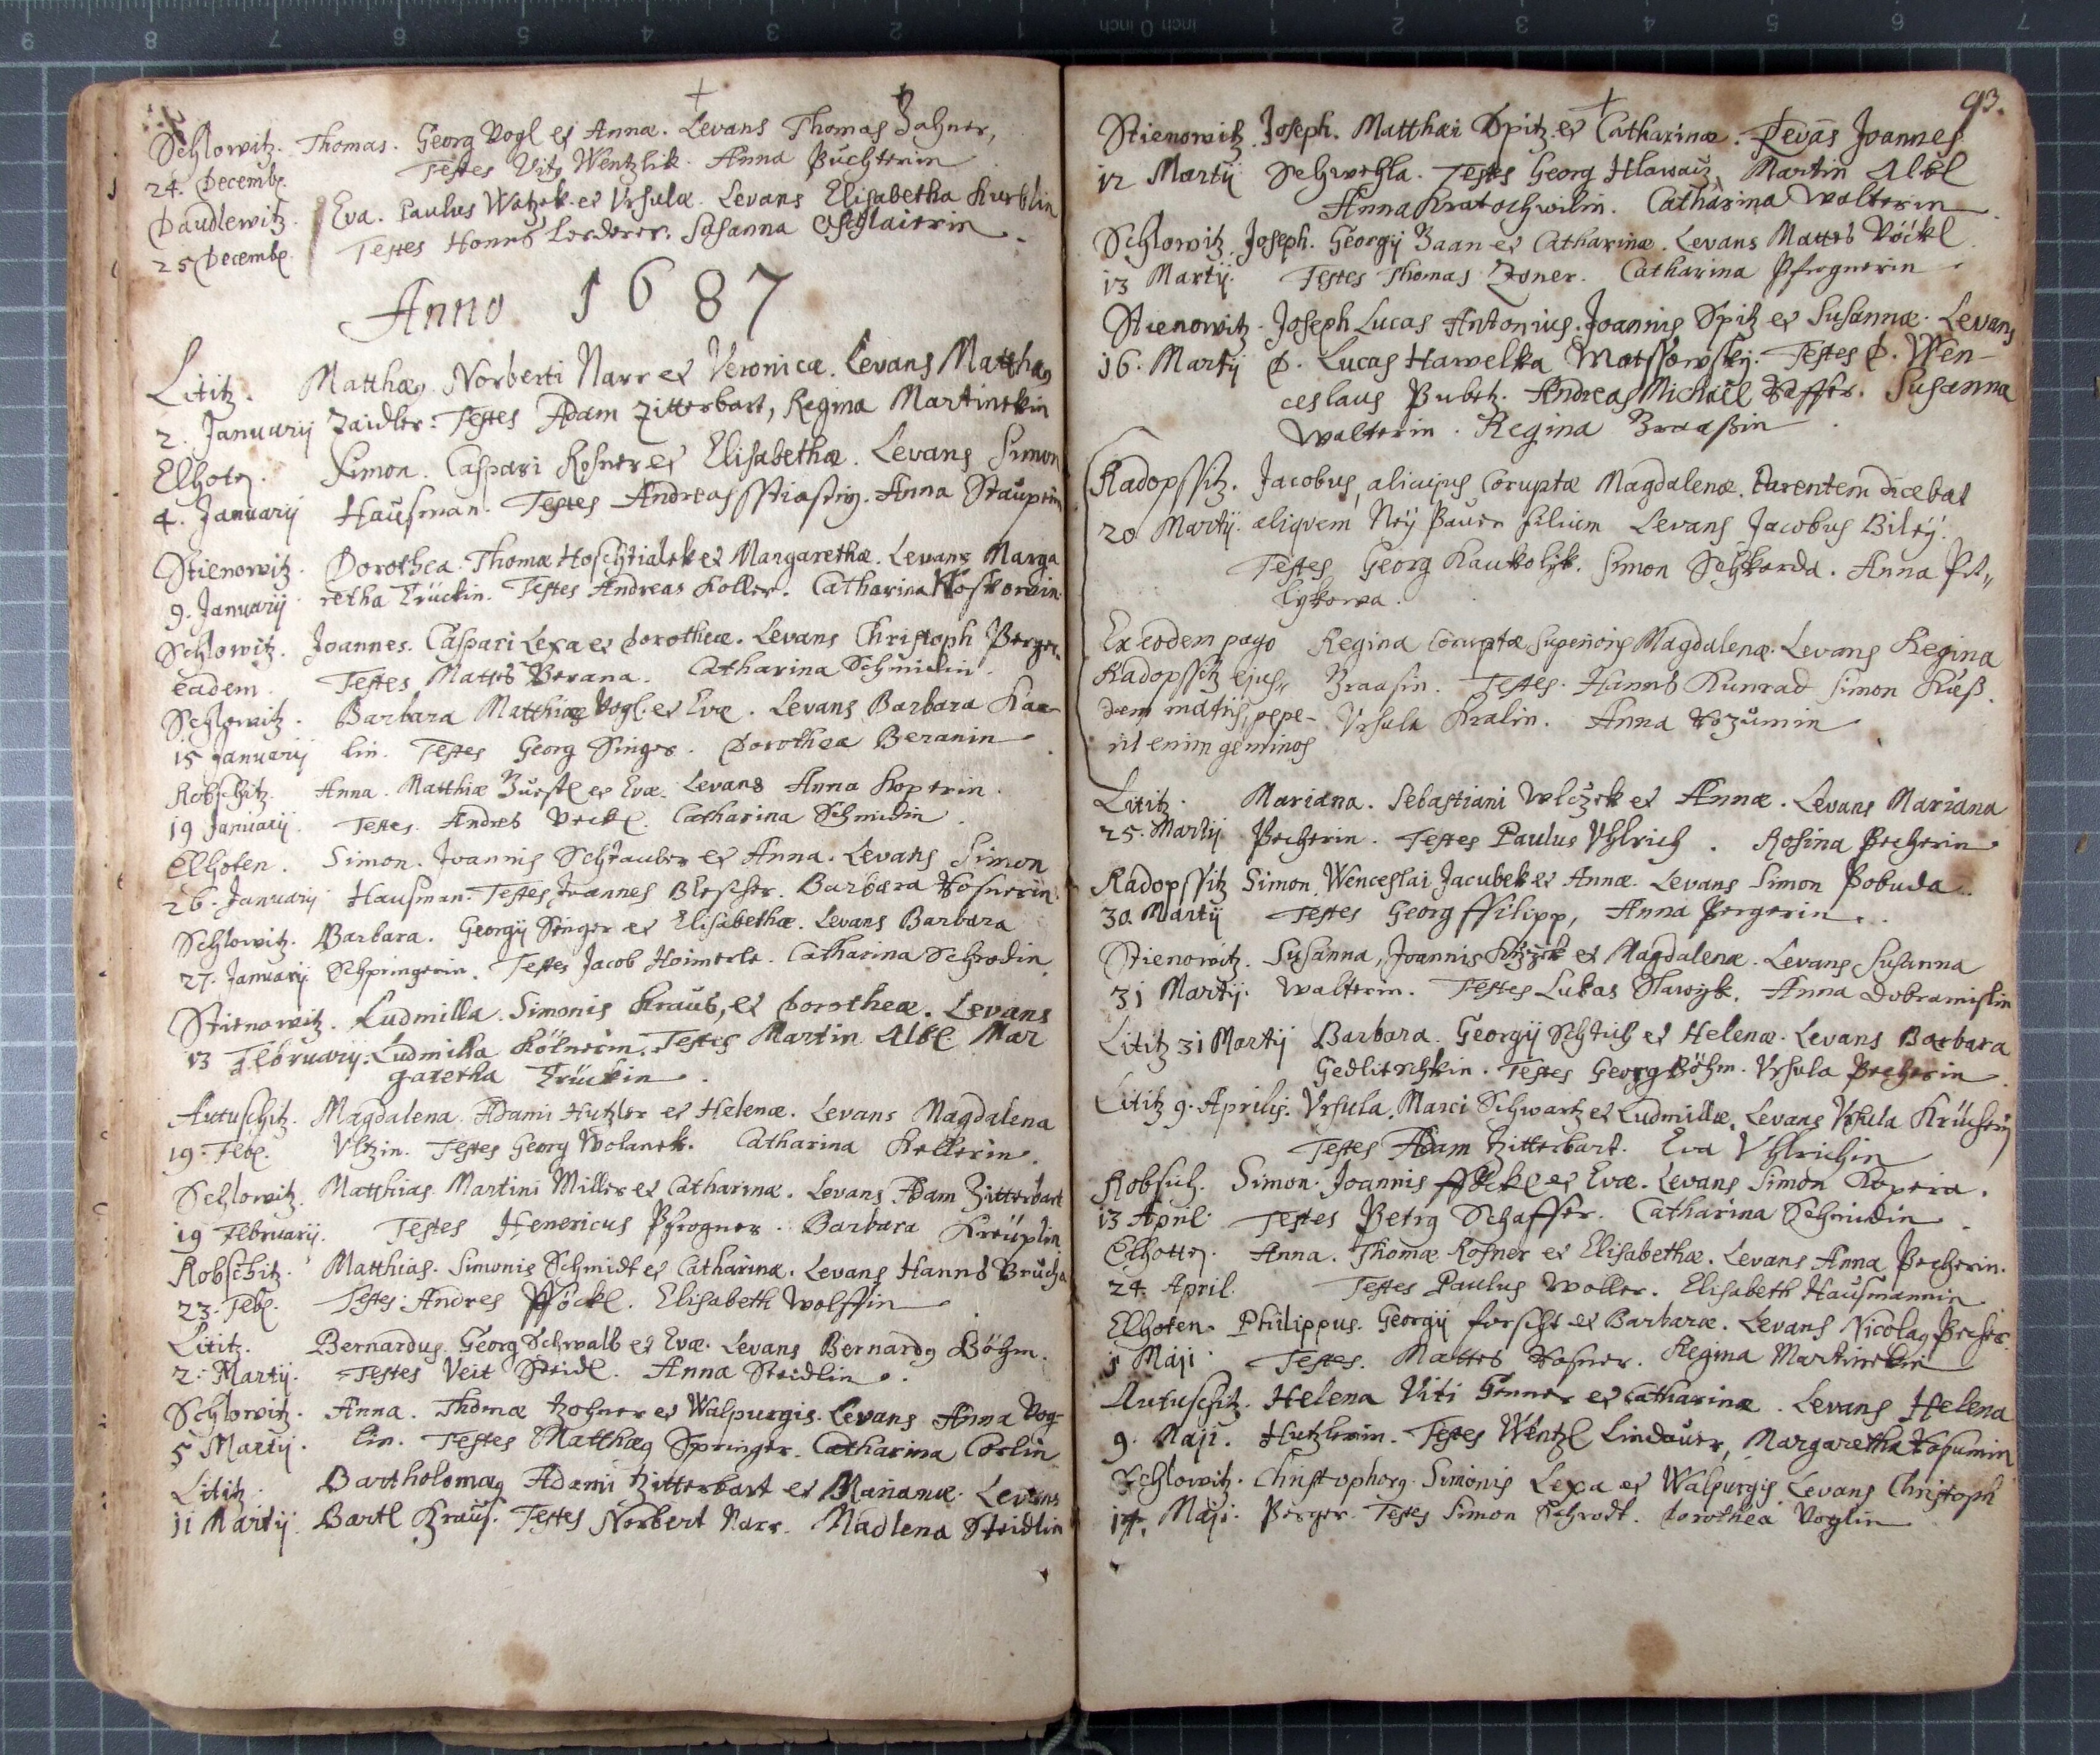 93.
Schlowitz. Thomas. Georg Vogl et Annæ. Levans Thomas Zahner,
24. Decemb. Testes Vitg Wentzlik. Anna Puchterin
Daudlewitz. Eva. Paulus Watzek et Ursulæ. Levans Elisabetha Kurblin
25 Decemb. Testes Hanns Lerderer. Susanna
Anno 1687
Lititz. Matthæg Norberti Narr et Veronicæ. Levans Matthæg
2. Januarij Zaidler. Testes Adam Zitterbart, Regina Martinekin
Elhoten. Simon. Caspari Rosner et Elisabethæ. Levans Simon
4. Januarij Hausman. Testes Andreas. Anna
Stienowitz. Dorothea. Thomæ Hoschtialek et Margarethæ. Levans Marga
9. Januarij retha Trückin. Testes Andreas Koller. Catharina
Schlowitz. Joannes. Caspari Lexa et Dorotheæ. Levans Christoph Perger.
eadem. Testes Mattes Berana. Catharina Schmidin.
Schlowitz. Barbara Matthiæ Vogl et Evæ. Levans Barbara Kaa-
15 Januarij lin. Testes Georg Singer. Dorothea Beranin
Robschitz. Anna. Matthiæ et Evæ. Levans Anna Koperin.
19 Januarij. Testes. Andres Veckl. Catharina Schmidin.
Elhoten. Simon. Joannis Schrauber et Anna. Levans Simon
26. Januarij Hausman. Testes Joannes Blescher. Barbara Rosnerin.
Schlowitz. Barbara. Georgij Singer et Elisabethæ. Levans Barbara
27. Januarij Schpringerin. Testes Jacob Heimerle. Catharina Schrodin
Stienowitz. Ludmilla. Simonis Kraus, et Dorotheæ. Levans
13 Februarij. Ludmilla Kölnerin. Testes Martin Albl. Mar
garetha Trückin.
Autuschitz. Magdalena. Adami Hutzler et Helenæ. Levans Magdalena
19. Feb. Ultzin. Testes Georg Wolanek. Catharina Kellerin.
Schlowitz. Matthias. Martini Miller et Catharinæ. Levans Adam Zitterbart
19 Februarij. Testes Henericus Pfrogner. Barbara Kreuplin
Robschitz. Matthias. Simonis Schmidt et Catharinæ. Levans Hanns Brucha
23. Feb. Testes. Andres Pföckl. Elisabeth Wolffin
Lititz. Bernardus. Georg Schwalb et Evæ. Levans Bernardg Böhm.
2. Martij. Testes Veit Steidl. Anna Steidlin.
Schlowitz. Anna. Thomæ Zohner et Walpurgis. Levans Anna Vog-
5 Martij. lin. Testes Matthæg Springer. Catharina Corlin
Lititz. Bartholomæg Adami Zitterbart et Marianæ. Levans
11 Martij Bartl Kraus. Testes Norbert Narr. Madlena Steidlin
Stienowitz. Joseph. Matthæi Spitz et Catharinæ. Levans Joannes
12 Martij Schwehla. Testes Georg Hlawatz, Martin Albl
Anna Kratochwilin. Catharina Walterin.
Schlowitz. Joseph. Georgij Baan et Catharinæ. Levans Mattes Vöckl
13 Martij. Testes Thomas Zoner. Catharina Pfrognerin
Stienowitz. Joseph Lucas Antonius. Joannis Spitz et Susannæ. Levans
16. Martij D. Lucas Hawelka Testes D. Wen-
ceslaus Pubetz. Andreas Michael. Susanna
Walterin. Regina Braaßin.
Radopssitz. Jacobus, alicujus Coruptæ Magdalenæ. Parentem dicebat
20 Martij. aliquem Neij Pauer filium Levans Jacobus Bileij.
Testes Georg Kaukolijk. Simon Schkarda. Anna Pet,,
lijkowa.
Ex eodem pago Regina Coruptæ superioris Magdalenæ. Levans Regina
Radopssitz ejus,, Braasin. Testes. Hanns Kunrad Simon Kieß.
dem matris, pepe- Ursula Kralin. Anna Rozumin
rit enim geminos
Lititz. Mariana. Sebastiani Wlczek et Annæ. Levans Mariana
25. Martij Pecherin. Testes Paulus Uhlrich. Rosina Pecherin
Radopssitz Simon, Wenceslai Jacubek et Annæ. Levans Simon Pobuda.
30. Martij Testes Georg Ffilipp, Anna Pergerin.
Stienowitz. Susanna, Joannis et Magdalenæ. Levans Susanna
31 Martij. Walterin. Testes Lukas Slawijk. Anna Dobramislin
Lititz 31 Martij Barbara. Georgij Schtich et Helenæ. Levans Barbara
Gedlitschkin. Testes Georg Böhm. Ursula Pecherin.
Lititz 9. Aprilis. Ursula. Marci Schwartz et Ludmillæ. Levans Ursula
Testes Adam Zitterbart. Eva Uhlrichin
Robsch. Simon. Joannis et Evæ. Levans Simon Kopera.
13 April. Testes Petrg Schaffer. Catharina Schmidin.
Elhotten. Anna. Thomæ Rosner et Elisabethæ. Levans Anna Pecherin.
24. April. Testes Paulus Woller. Elisabeth Hausmannin
Elhoten. Philippus. Georgij Forscht et Barbaræ. Levans Nicolag Pecher.
1 Maji. Testes. Mattes Rosner. Regina Martinekin
Autuschitz. Helena Viti Genner et Catharinæ. Levans Helena
9. Maji. Hutzlerin. Testes Wentzl Lindauer, Margaretha Rosumin
Schlowitz. Christophorg. Simonis Lexa et Walpurgis. Levans Christoph
14. Maji. Perger. Testes Simon Schrodt. Dorothea Voglin